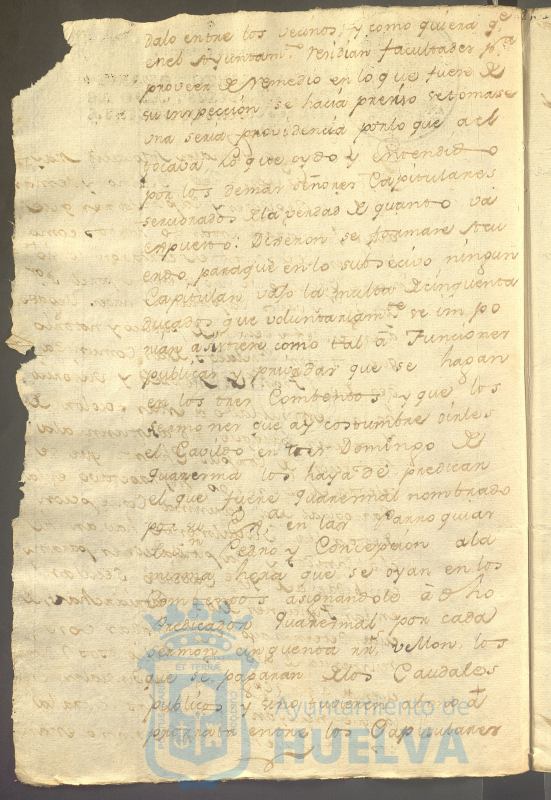 dalo entre los vecinos, y como quiera qe
en el Ayuntamto. residian facultades pa.
proveer de remedio en lo que fuere de
su inspección se hacia preciso se tomase
una seria providencia por lo que a el
tocava, lo que oydo y Entendido
por los demas señores Capitulares
de la verdad de quanto va
expuesto. Dixeron se formase Acu
erdo, para que en lo subsecivo ningun
Capitular vajo la multa de cinquenta
ducados que voluntariamte. se impo
nian asistiese como tal a Funciones
publicas y privadas que se hagan
en los tres Combentos, y que los
sermones que ay costumbre oirles
el Cavildo en los Domingos de
quaresma los haya de predicar
el que fuere quaresmal nombrado
por en las Parroquias
Sn. Pedro y Concepcion a la
misma hora que se oyan en los
Combentos asignandole a dho
Predicador quaresmal por cada
sermon cinquenta rrs. vellon, los
que se pagaran de los Caudales
publicos y sino pudieren a
prorrata entre los Capitulares
ET TERRAE
CUSTODIO
Ayuntamiento de
HUELVA